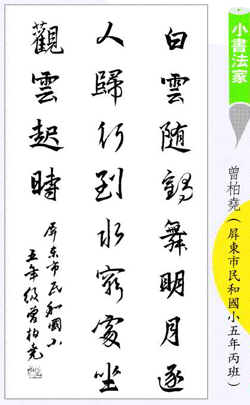 小書法家
曾柏堯（屏東市民和國小五年丙班）
白雲随鶴舞明月逐
人歸行到水窮處坐
觀雲起時
屏东市民和國小
五年级曾柏尧